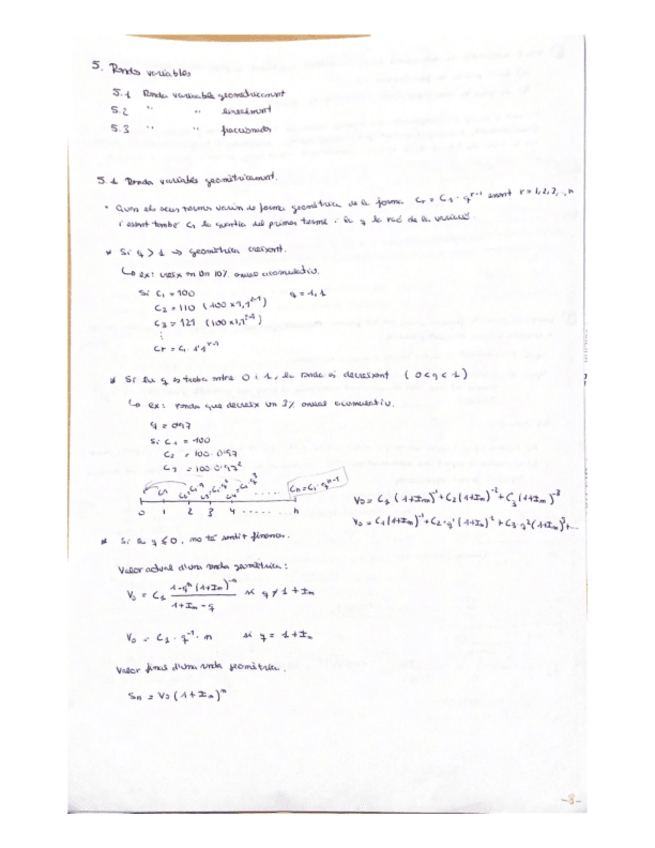 5. Rendes variables
5.1 Renda variable geomètricament
5.2 " " linealment
5.3 " " fraccionades
5.1 Renda variable geomètricament.
• Quan els seus termes varien de forma geomètrica de la forma Cr = C1 · q^r-1 essent r = 1, 2, 3, .., n
i essent també C1 la quantia del primer terme i la q la raó de la variació.
* Si q > 1 → geomètrica creixent.
↳ ex: creix en un 10% anual acumulatiu.
Si C1 = 100 q = 1,1
C2 = 110 (100 x 1,1^2-1)
C3 = 121 (100 x 1,1^3-1)
⋮
Cr = C1 · 1'1^r-1
* Si la q es troba entre 0 i 1, la renda és decreixent (0 < q < 1)
↳ ex: renda que decreix un 3% anual acumulatiu.
q = 0'97
Si C1 = 100
C2 = 100 · 0'97
C3 = 100 · 0'97^2
Cn = C1 · q^n-1
0 1 2 3 4 ...... n
V0 = C1 (1+Im)^-1 + C2 (1+Im)^-2 + C3 (1+Im)^-3
* Si la q ≤ 0, no té sentit financer.
Valor actual d'una renda geomètrica:
V0 = C1 1-q^n (1+Im)^-n / 1+Im-q si q ≠ 1+Im
V0 = C1 · q^-1 · n si q = 1+Im
Valor final d'una renda geomètrica.
Sn = V0 (1+Im)^n
-8-